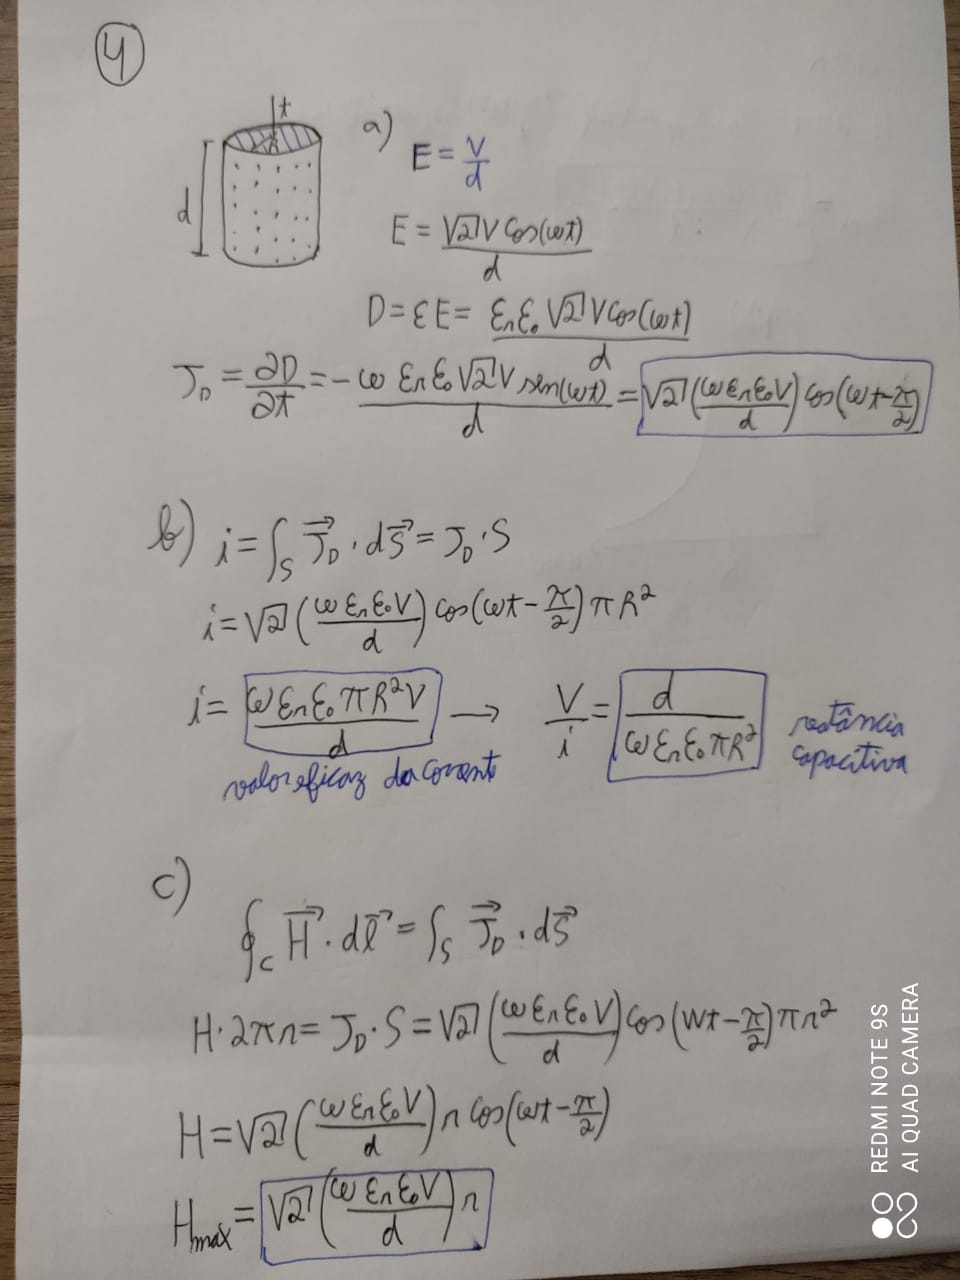 4
t
R
d
a) E = V/d
E = √2 V cos(ωt)/d
D = εE = εrε₀ √2 V cos(ωt)/d
J_D = ∂D/∂t = -ω εr ε₀ √2 V sen(ωt)/d = √2 (ω εr ε₀ V/d) cos(ωt - π/2)
b) i = ∫_S J⃗_D · dS⃗ = J_D · S
i = √2 (ω εr ε₀ V/d) cos(ωt - π/2) π R²
i = ω εr ε₀ π R² V/d → V/i = d/(ω εr ε₀ π R²) reatância capacitiva
valor eficaz da corrente
c)
∮_C H⃗ · dl⃗ = ∫_S J⃗_D · dS⃗
H · 2πr = J_D · S = √2 (ω εr ε₀ V/d) cos(ωt - π/2) π r²
H = √2 (ω εr ε₀ V/d) r cos(ωt - π/2)
H_max = √2 (ω εr ε₀ V/d) r
REDMI NOTE 9S
AI QUAD CAMERA